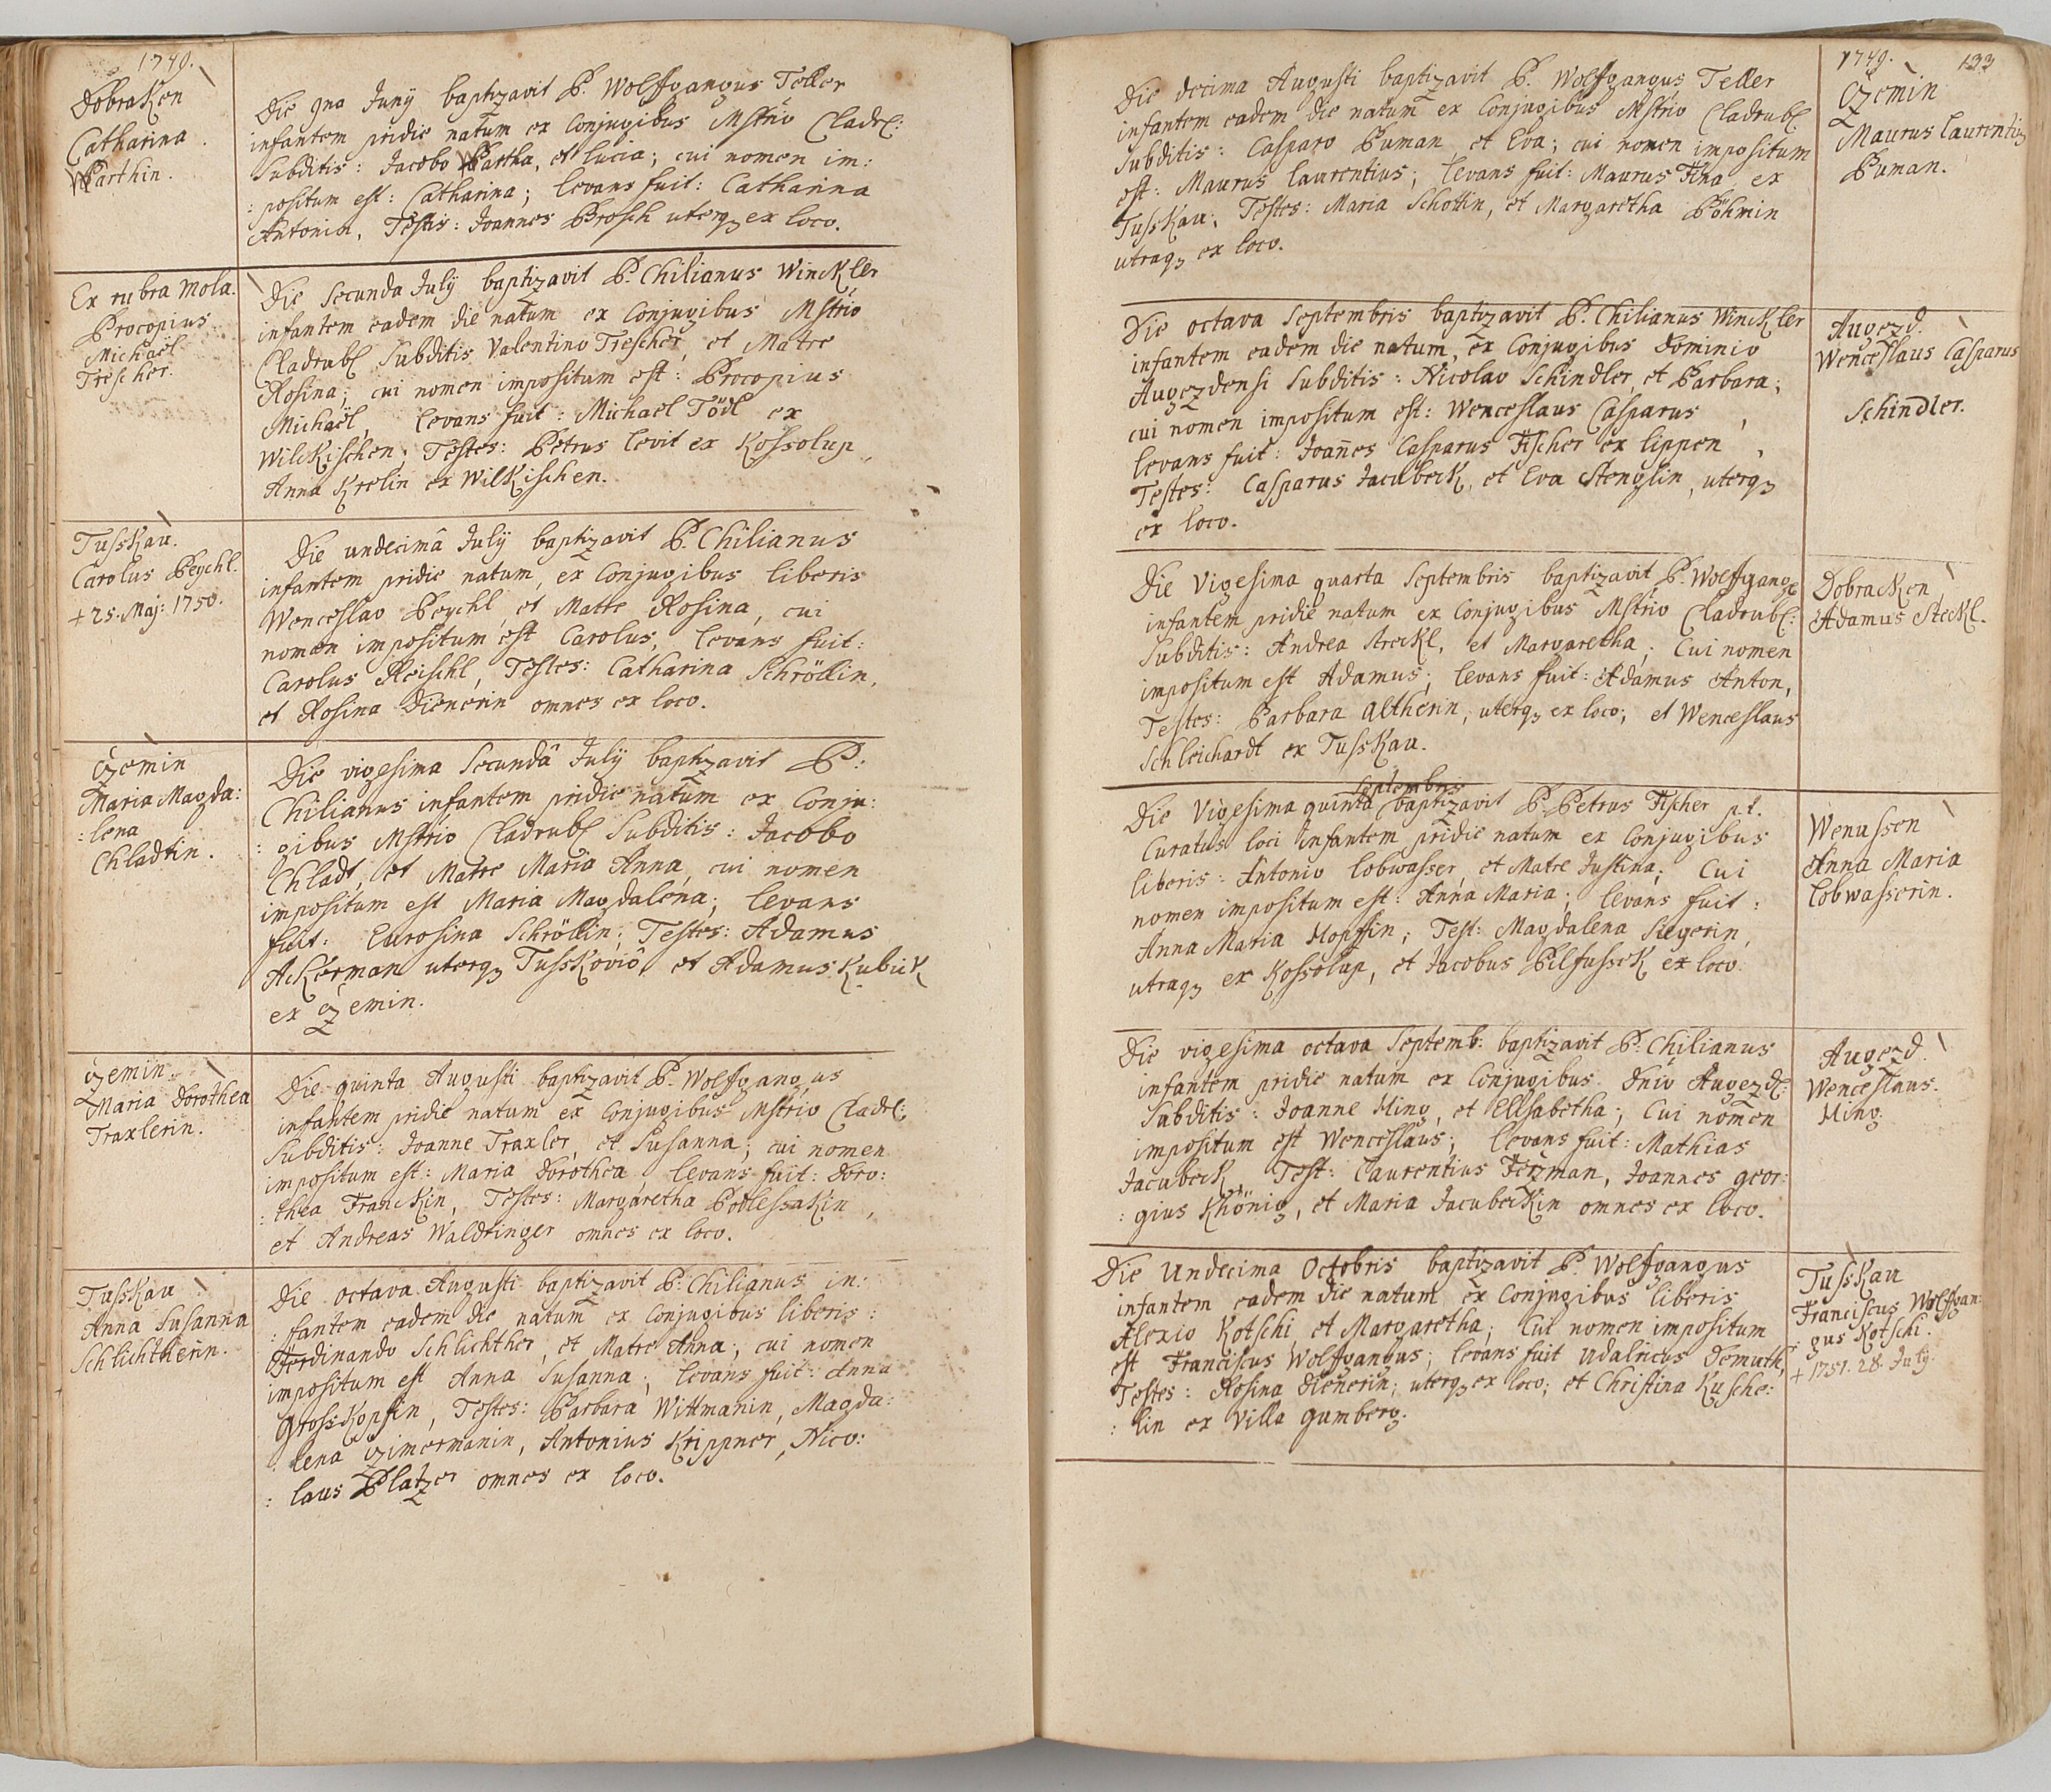 1749.
Dobraken
Catharina
Parthin.
Die 9na Junÿ baptizavit P. Wolffgangus Teller
infantem pridie natum ex Conjugibus Mstrio Cladr:
Subditis: Jacobo Partha, et Lucia; cui nomen im:
: positum est: Catharina; levans fuit: Catharina
Antonin, Testis: Joannes Brosch uterq ex loco.
Ex rubra mola.
Procopius
Michaël
Trescher.
Die Secunda Julÿ baptizavit P. Chilianus Winckler
infantem eadem die natum ex Conjugibus Mstrio
Cladrub Subditis Valentino Trescher, et Matre
Rosina; cui nomen impositum est: Procopius
Michaël, levans fuit: Michaël Tödl ex
Wilckischen, Testes: Petrus Levit ex Kossolup,
Anna Krolin ex Wilkischen.
Tusskau.
Carolus Peychl.
+ 25. Maj: 1750.
Die undecimâ Julÿ baptizavit P. Chilianus
infantem pridie natum, ex Conjugibus liberis
Wenceslao Peychl, et Matre Rosina, cui
nomen impositum est Carolus, levans fuit:
Carolus Reischl, Testes: Catharina Schröllin,
et Rosina Dienerin omnes ex loco.
Czemin
Maria Magda:
: lena
Chladtin.
Die vigesima Secundâ Julÿ baptizavit P:
Chilianus infantem pridie natum ex Conju:
: gibus Mstrio Cladrub Subditis: Jacobo
Chladt, et Matre Maria Anna, cui nomen
impositum est Maria Magdalena; levans
fuit: Eurosina Schröllin; Testes: Adamus
Ackerman uterq Tusskoviô, et Adamus Kubick
ex Czemin.
Czemin.
Maria Dorothea
Traxlerin.
Die quinta Augusti baptizavit P. Wolffgangus
infantem pridie natum ex Conjugibus Mstrio Cladr:
Subditis: Joanne Traxler, et Susanna; cui nomen
impositum est: Maria Dorothea, levans fuit: Doro:
: thea Franckin, Testes: Margaretha Potlessakin,
et Andreas Waldtinger omnes ex loco.
Tusskau
Anna Susanna
Schlichtherin.
Die octava Augusti baptizavit P. Chilianus in:
: fantem eadem die natum ex Conjugibus liberis:
Ferdinando Schlichther, et Matre Anna, cui nomen
impositum est Anna Susanna; levans fuit: Anna
Grosskopfin, Testes: Barbara Wittmanin, Magda:
: lena Czimermanin, Antonius Krippner, Nico:
: laus Platzer omnes ex loco.
1749. 133
Die decima Augusti baptizavit P. Wolffgangus Teller
infantem eadem die natum ex Conjugibus Mstrio Cladrub
Subditis: Casparo Puman, et Eva; cui nomen impositum
est: Maurus Laurentius; levans fuit: Maurus Fina ex
Tusskau, Testes: Maria Schottin, et Margaretha Böhmin
utraq ex loco.
Czemin
Maurus Laurentius
Puman.
Die octava Septembris baptizavit P. Chilianus Winckler
infantem eadem die natum, ex Conjugibus Dominio
Augezdensi Subditis: Nicolao Schindler, et Barbara;
cui nomen impositum est: Wenceslaus Casparus,
levans fuit: Joannes Casparus Fischer ex Lippen,
Testes: Casparus Jacubeck, et Eva Stenglin, uterq
ex loco.
Augezd.
Wenceslaus Casparus
Schindler.
Die Vigesima quarta Septembris baptizavit P. Wolffgang
infantem pridie natum ex Conjugibus Mstrio Cladrub:
Subditis: Andrea Steckl, et Margaretha; Cui nomen
impositum est Adamus; levans fuit: Adamus Anton,
Testes: Barbara Altherin, uterq ex loco; et Wenceslaus
Schleichardt ex Tusskau.
Dobracken
Adamus Steckl.
Septembris
Die Vigesima quinta baptizavit P. Petrus Fischer p.t.
Curatus loci infantem pridie natum ex Conjugibus
liberis: Antonio Lobwasser, et Matre Justina; Cui
nomen impositum est: Anna Maria; levans fuit:
Anna Maria Hopffin; Test: Magdalena Siegerin,
utraq ex Kossolup, et Jacobus Pilfusseck ex loco.
Wenussen
Anna Maria
Lobwasserin.
Die vigesima octava Septemb: baptizavit P. Chilianus
infantem pridie natum ex Conjugibus Dnio Augezd:
Subditis: Joanne Hing, et Elisabetha; Cui nomen
impositum est Wenceslaus; levans fuit: Mathias
Jacubeck, Test: Laurentius Fitzman, Joannes Geor:
: gius Khönig, et Maria Jacubeckin omnes ex loco.
Augezd.
Wenceslaus.
Hing
Die Undecima Octobris baptizavit P. Wolffgangus
infantem eadem die natum ex Conjugibus liberis
Alexio Kotschi, et Margaretha; Cui nomen impositum
est Franciscus Wolffgangus; levans fuit Udalricus Demuth,
Testes: Rosina Dienerin; uterq ex loco; et Christina Kusche:
: lin ex Villa Gumberg.
Tusskau
Franciscus Wolffgan:
: gus Kotschi.
+ 1751. 28. July.